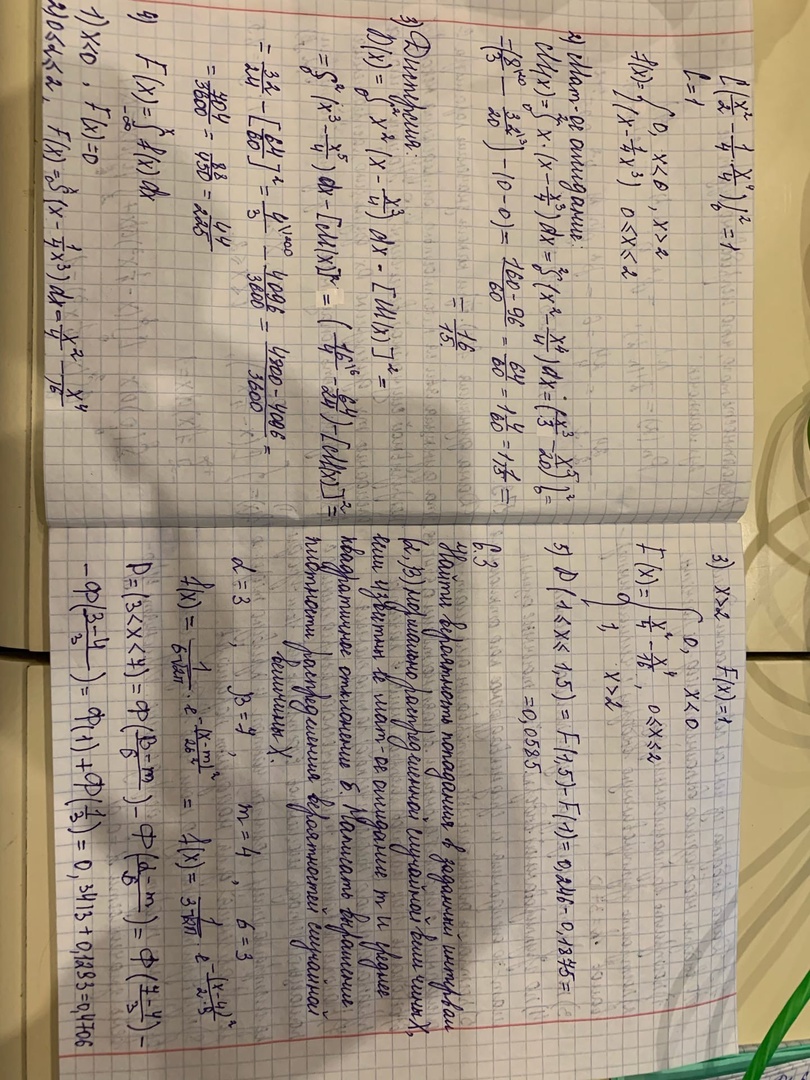 l(x²/2 - 1/4 · x⁴/4)|₀² = 1
l = 1
f(x) = { 0, x<0, x>2
1(x - 1/4 x³) 0≤x≤2
2) Мат-ое ожидание:
M(x) = ∫₀² x·(x - x³/4)dx = ∫₀² (x² - x⁴/4)dx = (x³/3 - x⁵/20)|₀² =
= (8/3 - 32/20) - (0-0) = 160-96/60 = 64/60 = 1 4/60 = 1 1/15 =
= 16/15.
3) Дисперсия:
D(x) = ∫₀² x²(x - x³/4)dx - [M(x)]² =
= ∫₀² (x³ - x⁵/4)dx - [M(x)]² = (16/4 - 64/24) - [M(x)]² =
= 32/24 - [64/60]² = 4/3 - 4096/3600 = 4800-4096/3600 =
= 704/3600 = 88/450 = 44/225
4) F(x) = ∫₋∞ˣ f(x)dx
1) x<0, F(x)=0
2) 0≤x≤2, F(x) = ∫₀ˣ (x - 1/4 x³)dx = x²/4 - x⁴/16
3) x>2 F(x)=1
F(x) = { 0, x<0
x²/4 - x⁴/16, 0≤x≤2
1, x>2
5) P(1≤x≤1,5) = F(1,5) - F(1) = 0,246 - 0,1875 =
= 0,0585
6.3
Найти вероятность попадания в заданный интервал
(α, β) нормально распределенной случайной величины X,
если известны ее мат-ое ожидание m и среднее
квадратичное отклонение б. Написать выражение
плотности распределения вероятностей случайной
величины X.
α=3, β=7, m=4, б=3
f(x) = 1/б√2π · e^-(x-m)²/2б² = f(x) = 1/3√2π · e^-(x-4)²/2·9
P=(3<x<7) = Ф(β-m/б) - Ф(α-m/б) = Ф(7-4/3) -
- Ф(3-4/3) = Ф(1) + Ф(1/3) = 0,3413 + 0,1293 = 0,4706